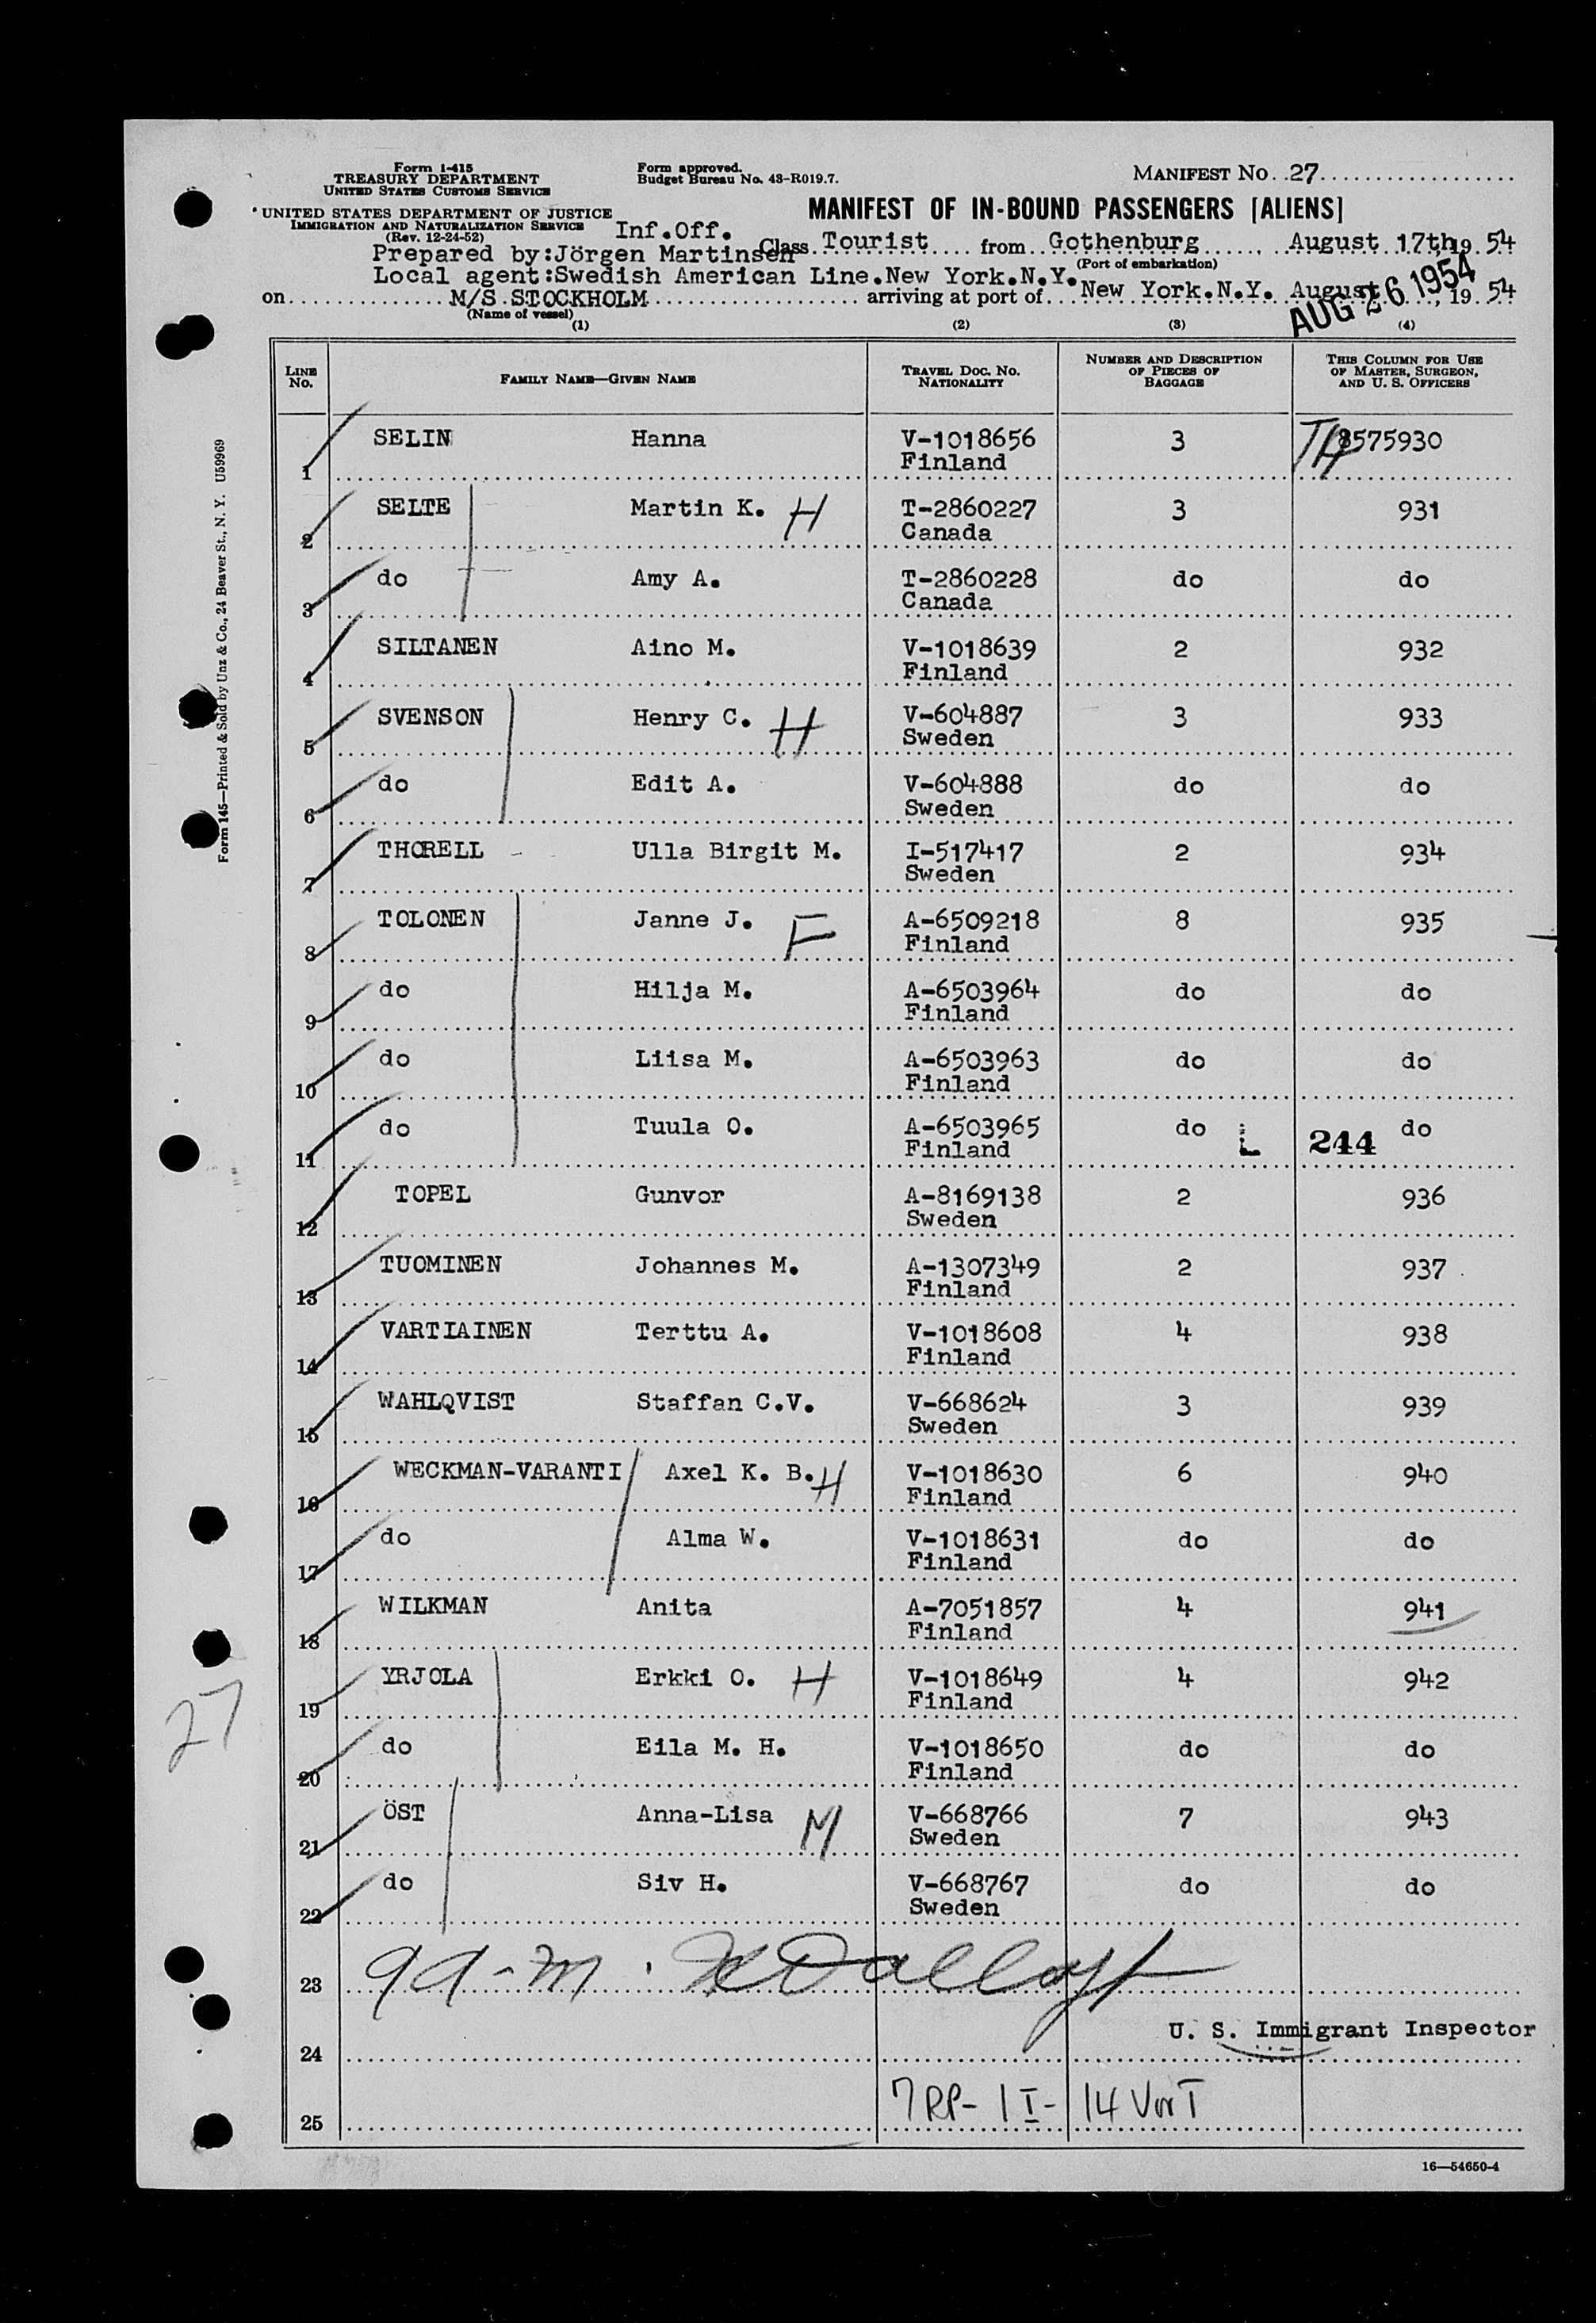 Form I-415
TREASURY DEPARTMENT
UNITED STATES CUSTOMS SERVICE
Form approved.
Budget Bureau No. 43-R019.7.
MANIFEST NO. 27
UNITED STATES DEPARTMENT OF JUSTICE
IMMIGRATION AND NATURALIZATION SERVICE
(Rev. 12-24-52)
MANIFEST OF IN-BOUND PASSENGERS [ALIENS]
Inf.Off.
Prepared by:Jörgen Martinsen Class Tourist from Gothenburg, August 17th, 19 54
(Port of embarkation)
Local agent:Swedish American Line.New York.N.Y.
on M/S STOCKHOLM arriving at port of New York.N.Y. August, 19 54
AUG 26 1954
(Name of vessel)
(1) (2) (3) (4)
LINE NO. FAMILY NAME—GIVEN NAME TRAVEL DOC. NO. NATIONALITY NUMBER AND DESCRIPTION OF PIECES OF BAGGAGE THIS COLUMN FOR USE OF MASTER, SURGEON, AND U. S. OFFICERS
1 SELIN Hanna V-1018656 3 8575930
Finland
2 SELTE Martin K. H T-2860227 3 931
Canada
3 do Amy A. T-2860228 do do
Canada
4 SILTANEN Aino M. V-1018639 2 932
Finland
5 SVENSON Henry C. H V-604887 3 933
Sweden
6 do Edit A. V-604888 do do
Sweden
7 THORELL Ulla Birgit M. I-517417 2 934
Sweden
8 TOLONEN Janne J. F A-6509218 8 935
Finland
9 do Hilja M. A-6503964 do do
Finland
10 do Liisa M. A-6503963 do do
Finland
11 do Tuula O. A-6503965 do L 244 do
Finland
12 TOPEL Gunvor A-8169138 2 936
Sweden
13 TUOMINEN Johannes M. A-1307349 2 937
Finland
14 VARTIAINEN Terttu A. V-1018608 4 938
Finland
15 WAHLQVIST Staffan C.V. V-668624 3 939
Sweden
16 WECKMAN-VARANTI Axel K. B. H V-1018630 6 940
Finland
17 do Alma W. V-1018631 do do
Finland
18 WILKMAN Anita A-7051857 4 941
Finland
19 YRJOLA Erkki O. H V-1018649 4 942
Finland
20 do Eila M. H. V-1018650 do do
Finland
21 ÖST Anna-Lisa M V-668766 7 943
Sweden
22 do Siv H. V-668767 do do
Sweden
23
U. S. Immigrant Inspector
24
7 RP- 1 I- 14 V or T
25
16—54650-4
Form 145—Printed & Sold by Unz & Co., 24 Beaver St., N. Y. U59969
27